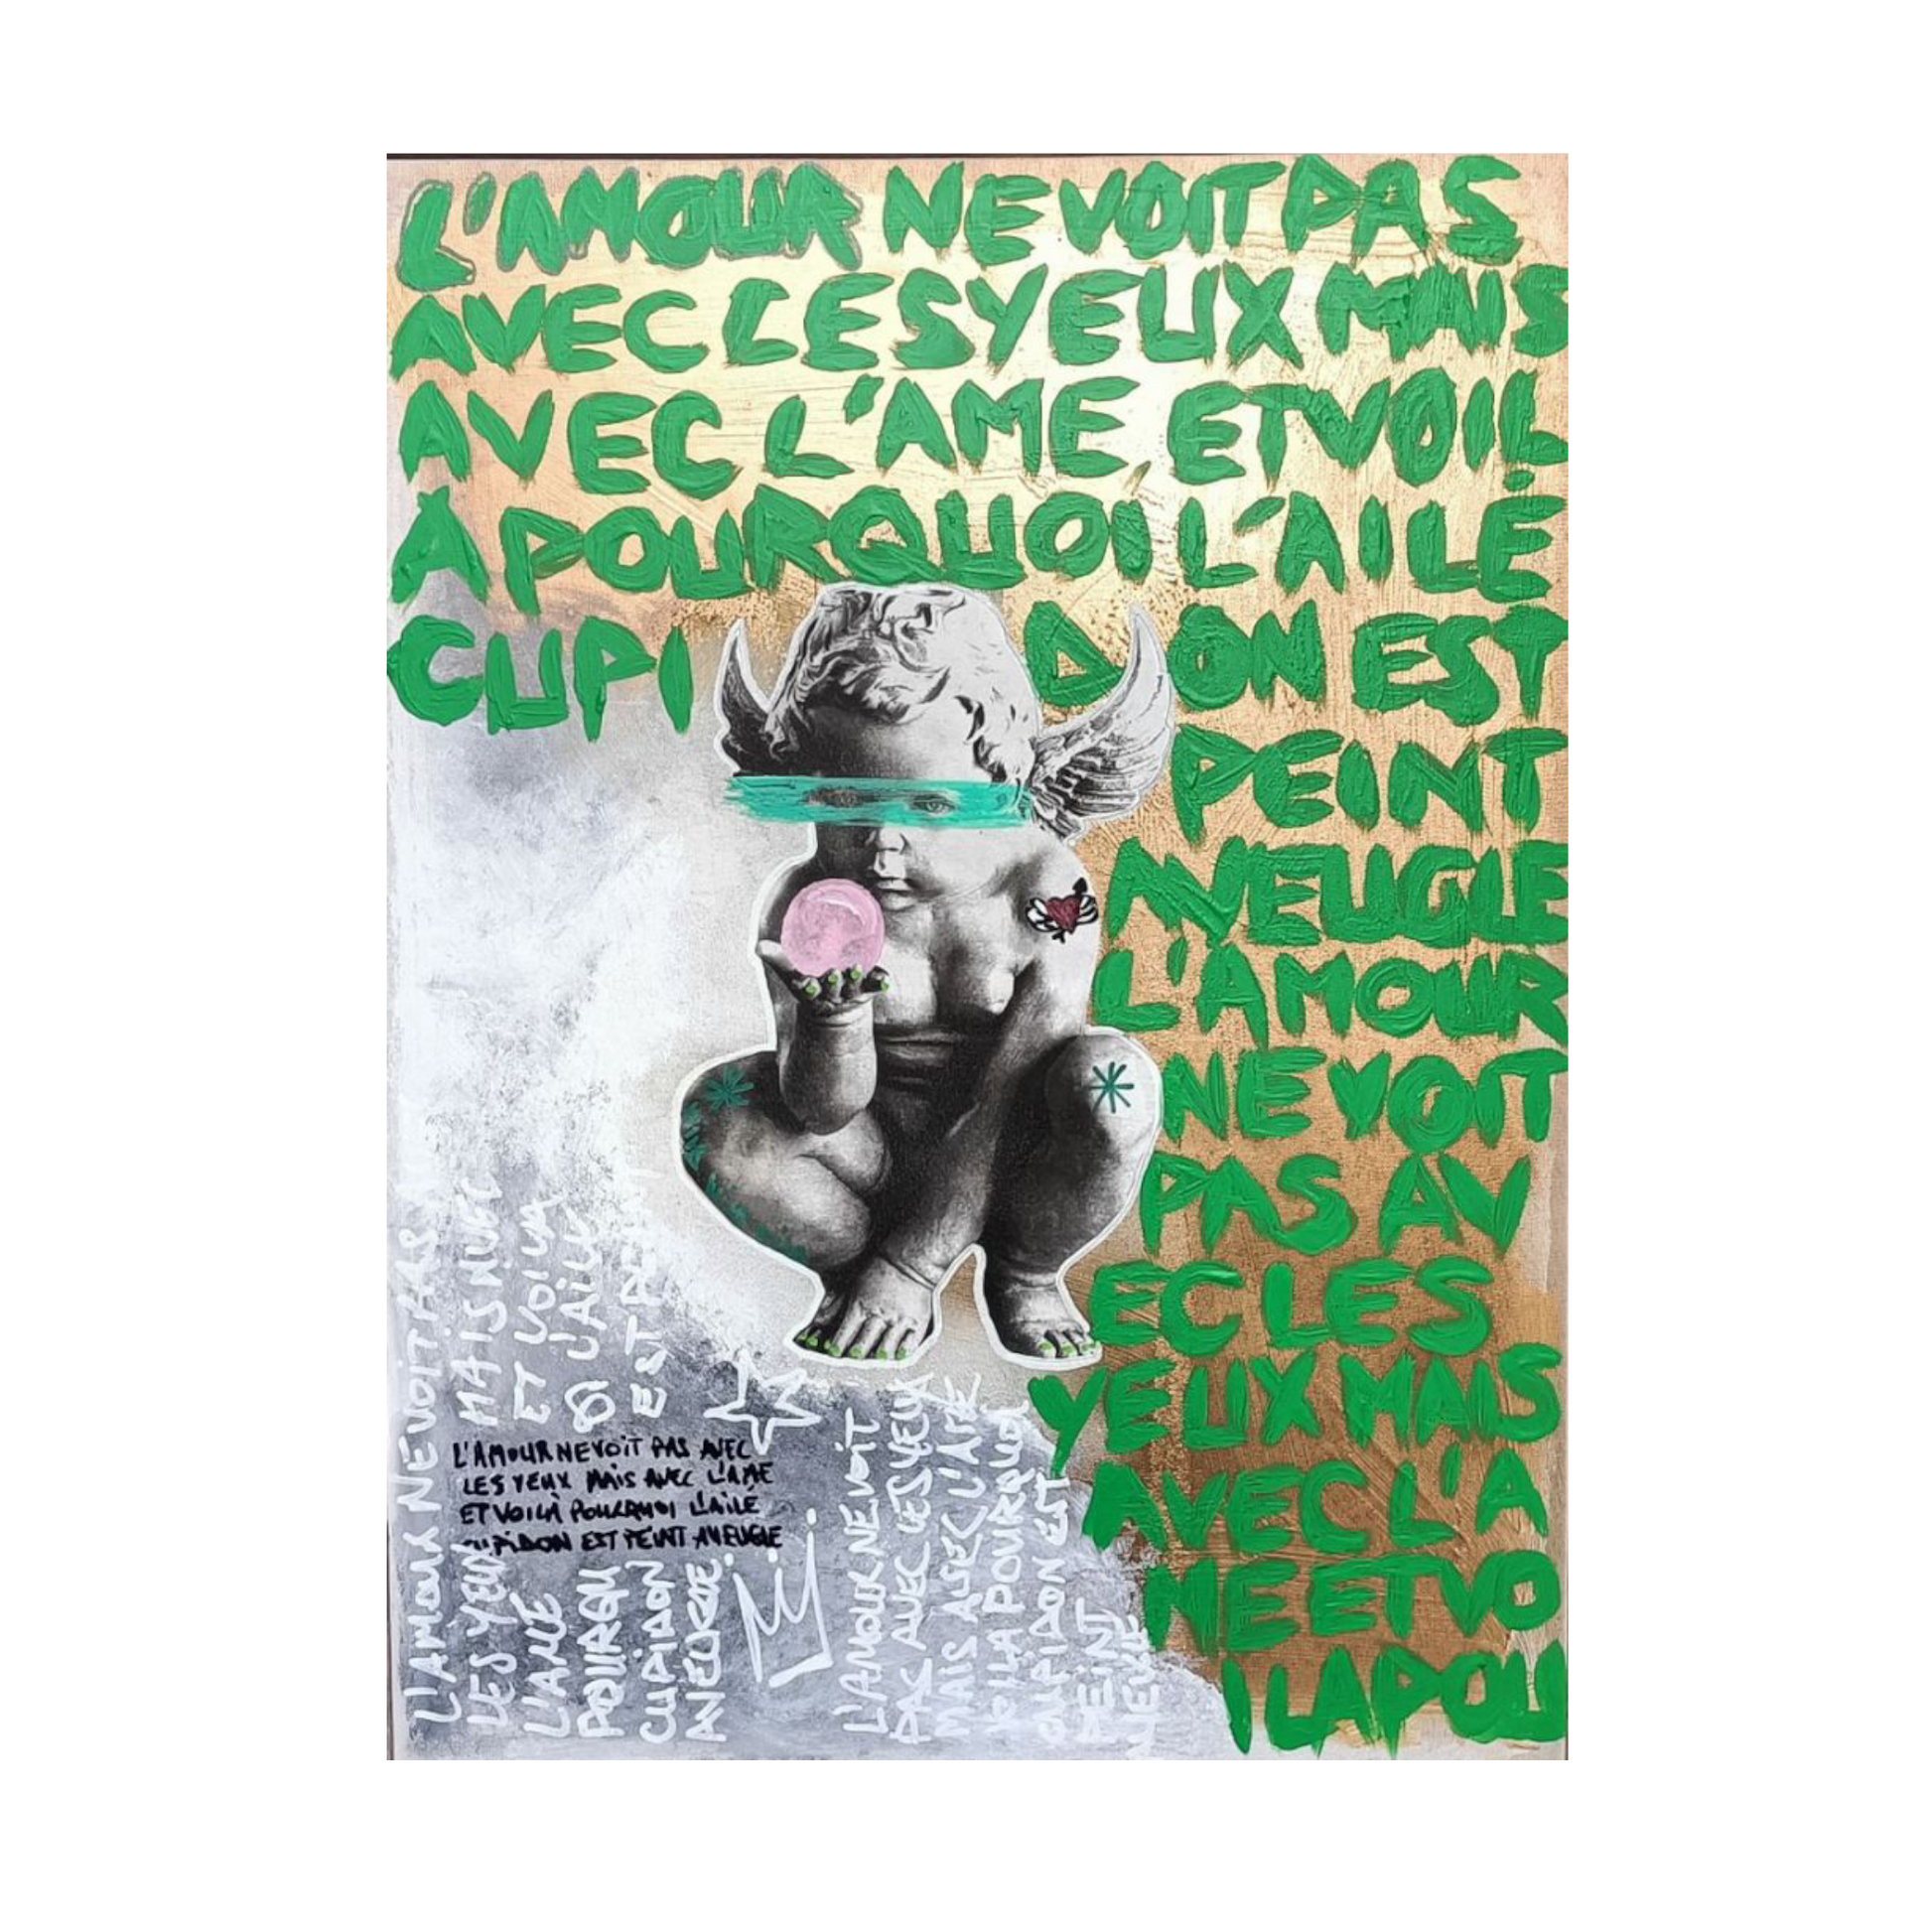 L'AMOUR NE VOIT PAS
AVEC LES YEUX MAIS
AVEC L'AME, ET VOIL
À POURQUOI L'AILÉ
CUPIDON EST
PEINT
AVEUGLE
L'AMOUR
NE VOIT
PAS AV
EC LES
YEUX MAIS
AVEC L'A
ME ET VO
ILA POU
L'AMOUR NE VOIT PAS
LES YEUX MAIS AVEC
L'AME ET VOILA
POURQUOI L'AILÉ
CUPIDON EST PEINT
AVEUGLE
L'AMOUR NE VOIT PAS AVEC
LES YEUX MAIS AVEC L'AME
ET VOILÀ POURQUOI L'AILÉ
CUPIDON EST PEINT AVEUGLE
L'AMOUR NE VOIT
PAS AVEC LES YEUX
MAIS AVEC L'AME
VOILA POURQUOI
CUPIDON EST
PEINT